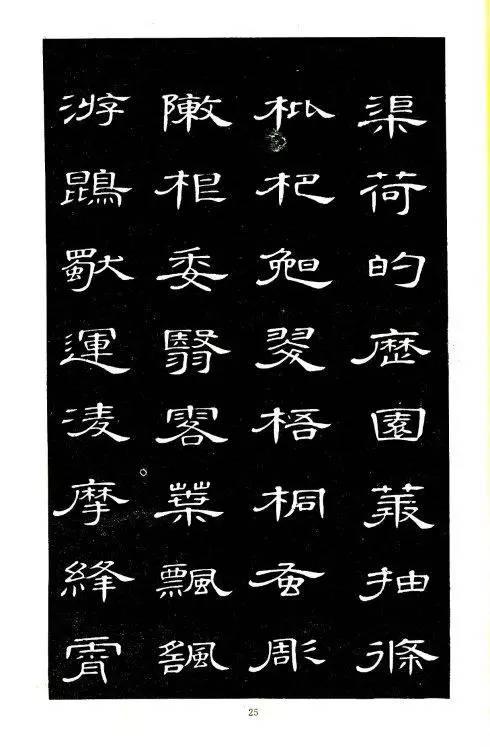 渠荷的歷園抽條
枇杷晚翠梧桐蚤彫
陳根委翳落葉飄颻
游鵾獨運凌摩絳霄
25